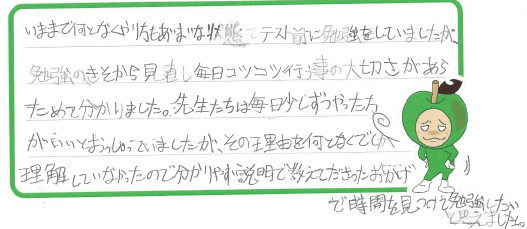 いままで何となくやり方もあいまいな状態でテスト前に勉強をしていましたが、
勉強のきそから見直し毎日コツコツ行う事の大切さがあら
ためて分かりました。先生たちは毎日少しずつやった方
がいいとおっしゃっていましたが、その理由を何となくでしか
理解していなかったので分かりやすい説明で教えてくださったおかげ
で時間を見つけて勉強したい
と思えました。